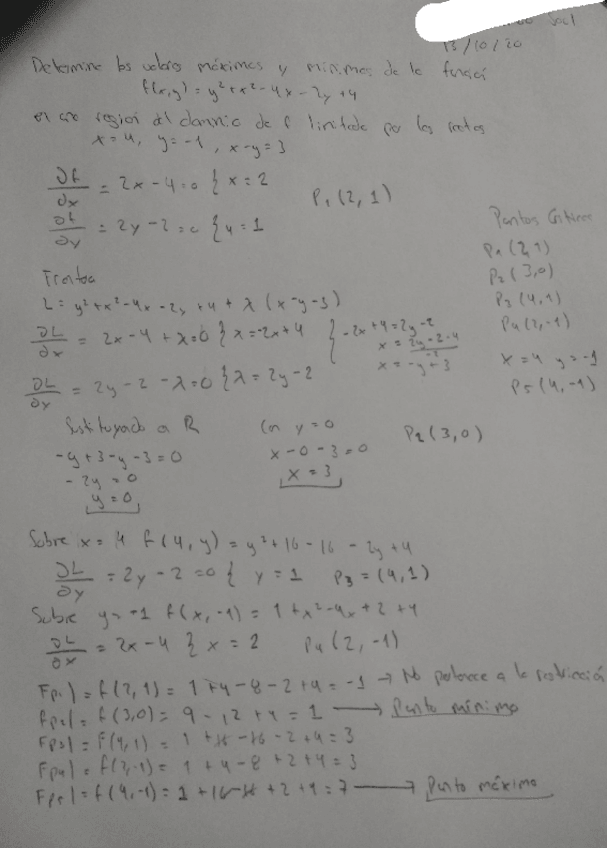 Saul
13/10/20
Determine los valores máximos y mínimos de la función
f(x,y) = y² + x² - 4x - 2y + 4
en una región del dominio de f limitada por las rectas
x = 4, y = -1, x - y = 3
∂f/∂x = 2x - 4 = 0 { x = 2
P₁ (2, 1)
∂f/∂y = 2y - 2 = 0 { y = 1
Puntos Críticos
P₁ (2,1)
P₂ (3,0)
P₃ (4,1)
P₄ (2,-1)
x = 4 y = -1
P5 (4,-1)
Frontera
L = y² + x² - 4x - 2y + 4 + λ (x - y - 3)
∂L/∂x = 2x - 4 + λ = 0 { λ = -2x + 4 } -2x + 4 = 2y - 2
x = 2y - 2 - 4 / -2
x = -y + 3
∂L/∂y = 2y - 2 - λ = 0 { λ = 2y - 2
Sustituyendo en R
-y + 3 - y - 3 = 0
-2y = 0
y = 0
Con y = 0
x - 0 - 3 = 0
x = 3
P₂ (3,0)
Sobre x = 4 f(4, y) = y² + 16 - 16 - 2y + 4
∂L/∂y = 2y - 2 = 0 { y = 1 P₃ = (4,1)
Sobre y = -1 f(x, -1) = 1 + x² - 4x + 2 + 4
∂L/∂x = 2x - 4 } x = 2 P₄ (2, -1)
Fp₁) = f(2, 1) = 1 + 4 - 8 - 2 + 4 = -1 → No pertenece a la restricción
Fp₂) = f(3,0) = 9 - 12 + 4 = 1 → Punto mínimo
Fp₃) = F(4,1) = 1 + 16 - 16 - 2 + 4 = 3
Fp₄) = f(2,-1) = 1 + 4 - 8 + 2 + 4 = 3
Fp₅) = f(4,-1) = 1 + 16 - 16 + 2 + 4 = 7 → Punto máximo